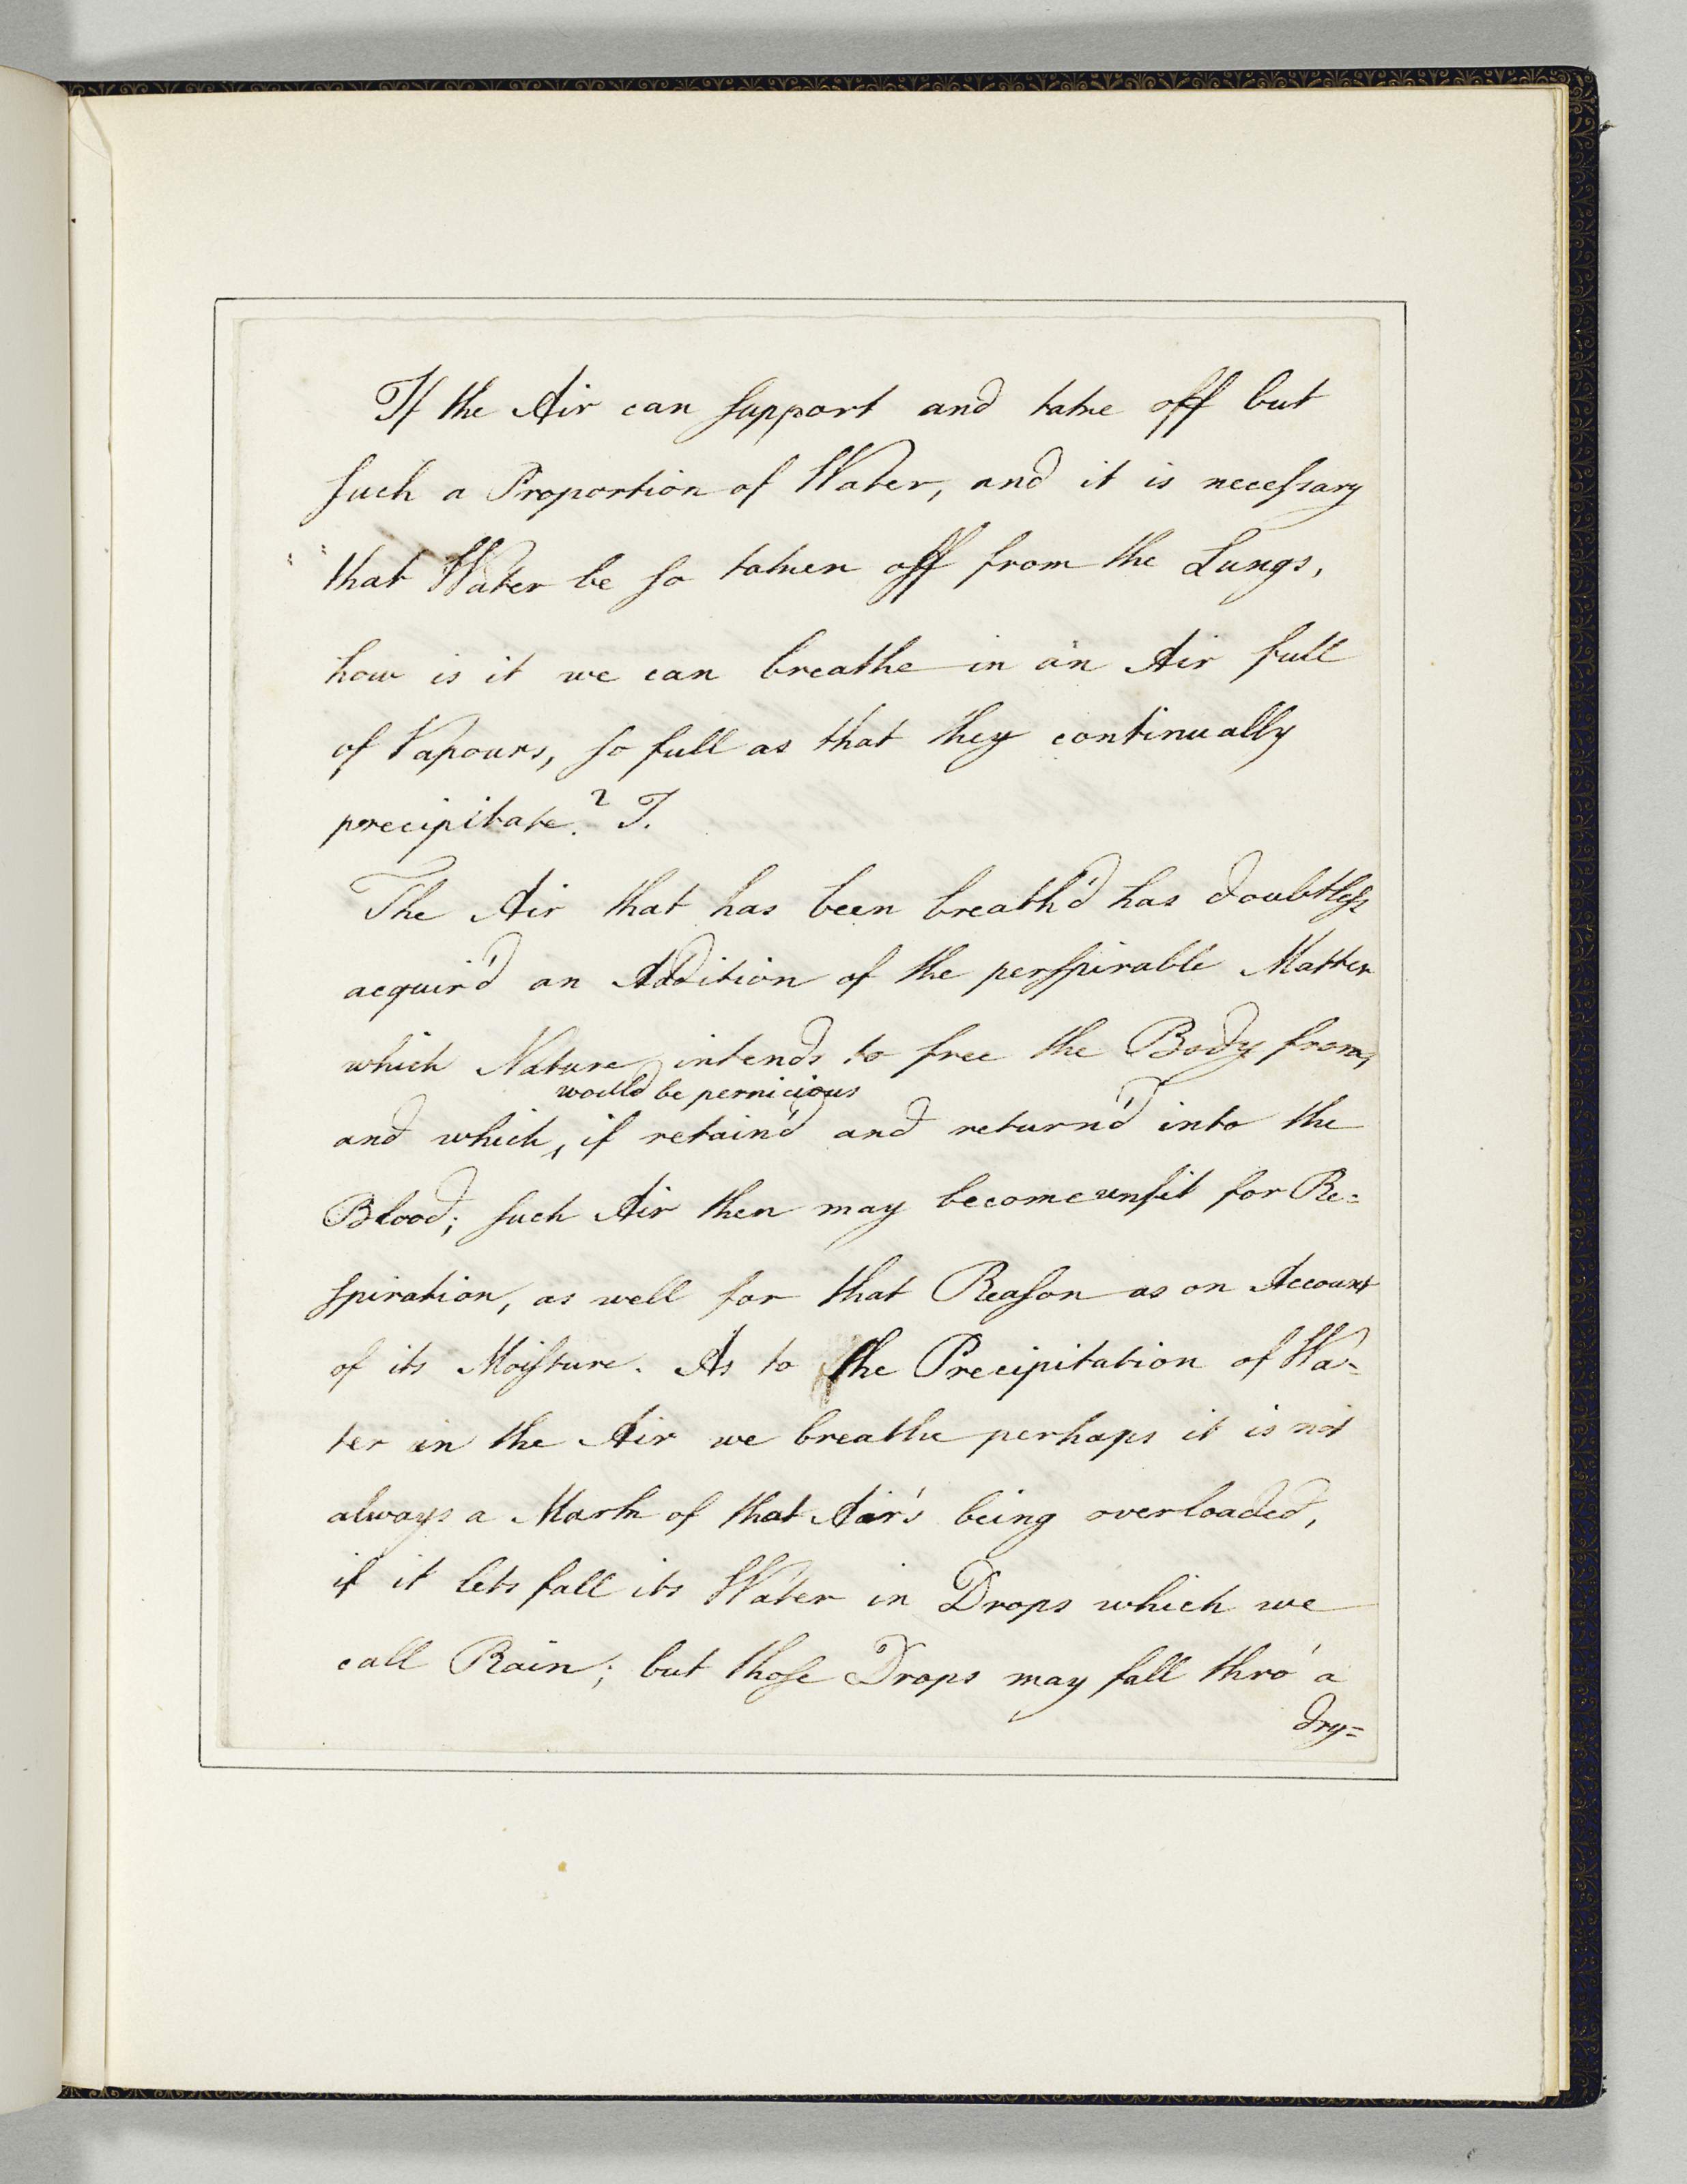 If the Air can ſupport and take off but
ſuch a Proportion of Water, and it is neceſsary
that Water be ſo taken off from the Lungs,
how is it we can breathe in an Air full
of Vapours, ſo full as that they continually
precipitate? T.
The Air that has been breath'd has doubtleſs
acquir'd an Addition of the perſpirable Matter
which Nature intends to free the Body from,
would be pernicious
and which, if retain'd and return'd into the
Blood; ſuch Air then may become unfit for Re=
ſpiration, as well for that Reaſon as on Account
of its Moiſture. As to the Precipitation of Wa=
ter in the Air we breathe perhaps it is not
always a Mark of that Air's being overloaded,
if it lets fall its Water in Drops which we
call Rain; but thoſe Drops may fall thro' a
dry=